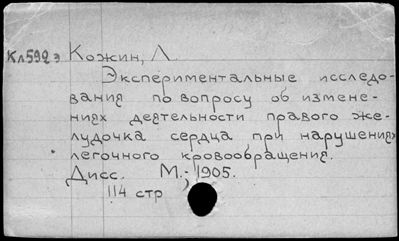 Кл592э Кожин, Л.
Экспериментальные исследо-
вания по вопросу об измене-
ниях деятельности правого же-
лудочка сердца при нарушениях
легочного кровообращения.
Дисс. М., 1905.
114 стр